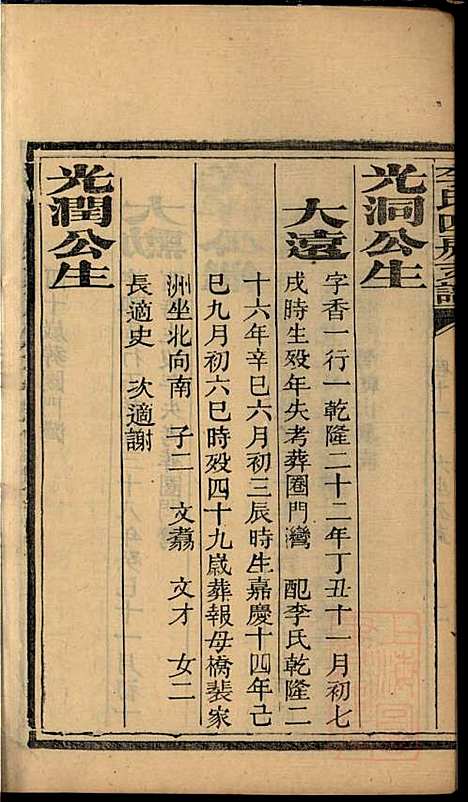 氏四房支譜
光洞公生
大遠
字香一行一乾隆二十二年丁丑十一月初七
戌時生殁年失考葬圈門灣 配李氏乾隆二
十六年辛巳六月初三辰時生嘉慶十四年己
巳九月初六巳時殁四十九歲葬報母橋裴家
洲坐北向南 子二 文翥 文才 女二
長適史 次適謝
光潤公生